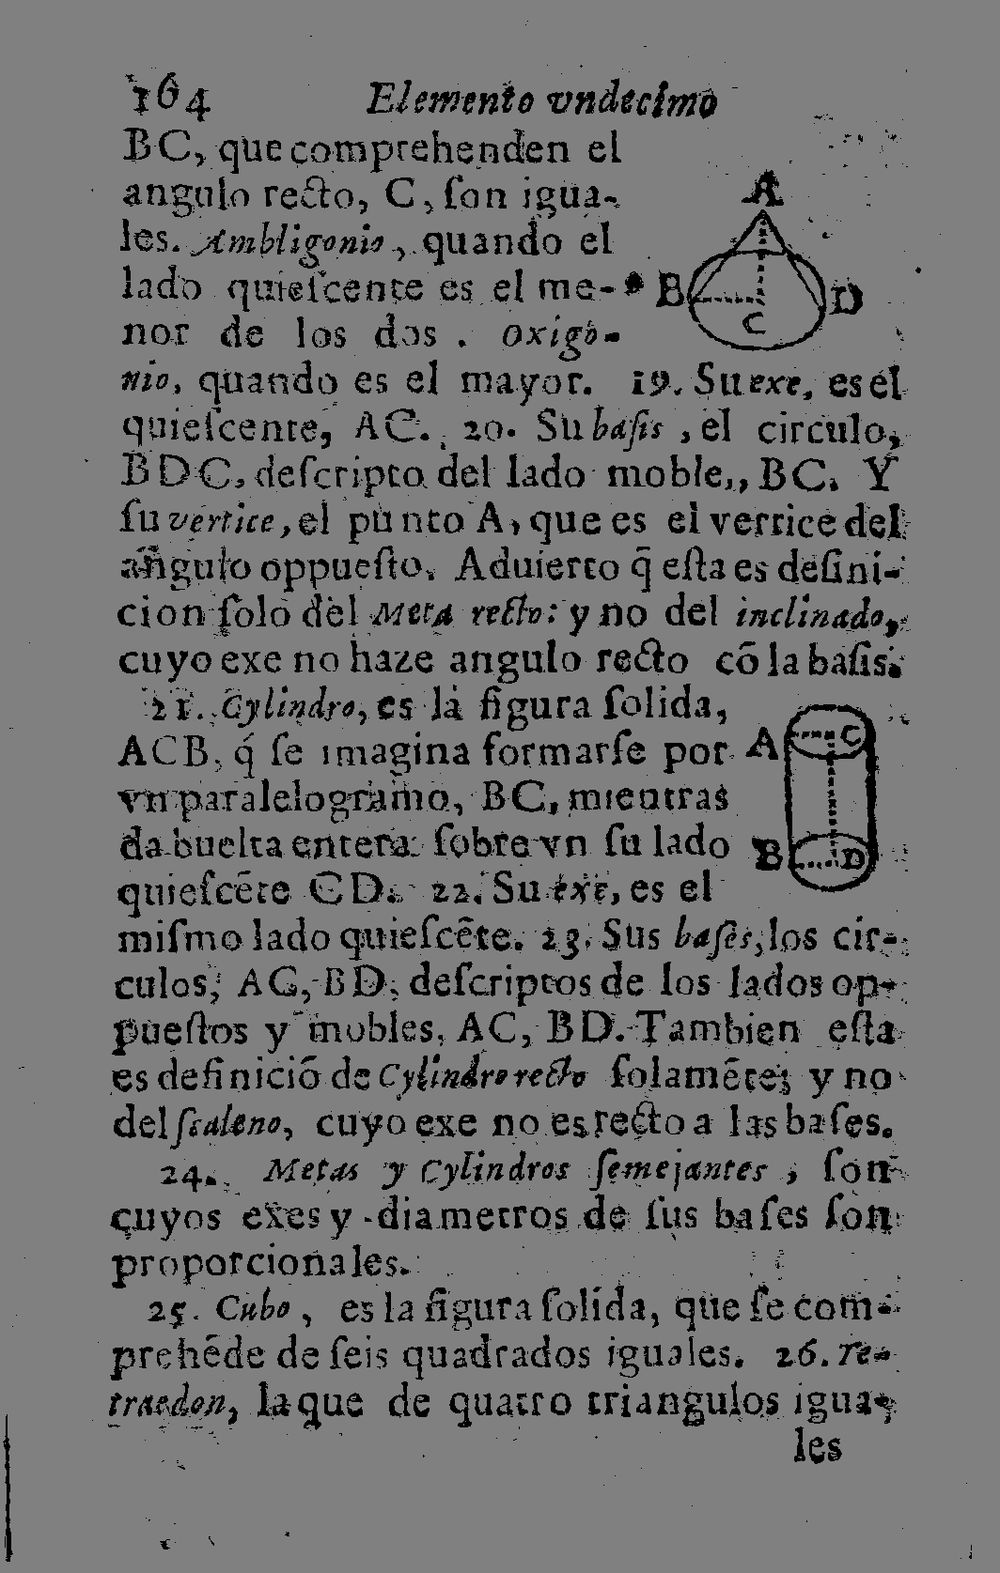 164 Elemento vndecimo
BC, que comprehenden el
angulo recto, C, ſon igua-
les. Ambligonio, quando el
lado quieſcente es el me-
nor de los dos. Oxigo-
nio, quando es el mayor. 19. Su exe, es el
quieſcente, AC. 20. Su baſis, el circulo,
BDC, deſcripto del lado moble, BC. Y
ſu vertice, el punto A, que es el vertice del
angulo oppueſto. Aduierto q̃ eſta es defini-
cion ſolo del Meta recto: y no del inclinado,
cuyo exe no haze angulo recto cõ la baſis.
21. Cylindro, es la figura ſolida,
ACB, q̃ ſe imagina formarſe por
vn paralelogramo, BC, mientras
da buelta entera ſobre vn ſu lado
quieſcẽte CD. 22. Su exe, es el
miſmo lado quieſcẽte. 23. Sus baſes, los cir-
culos, AC, BD, deſcriptos de los lados op-
pueſtos y mobles, AC, BD. Tambien eſta
es definiciõ de Cylindro recto ſolamẽte; y no
del ſcaleno, cuyo exe no es recto a las baſes.
24. Metas y Cylindros ſemejantes, ſon
cuyos exes y diametros de ſus baſes ſon
proporcionales.
25. Cubo, es la figura ſolida, que ſe com-
prehẽde de ſeis quadrados iguales. 26. Te-
traedon, la que de quatro triangulos igua-
les
A
B
D
C
A
C
B
D